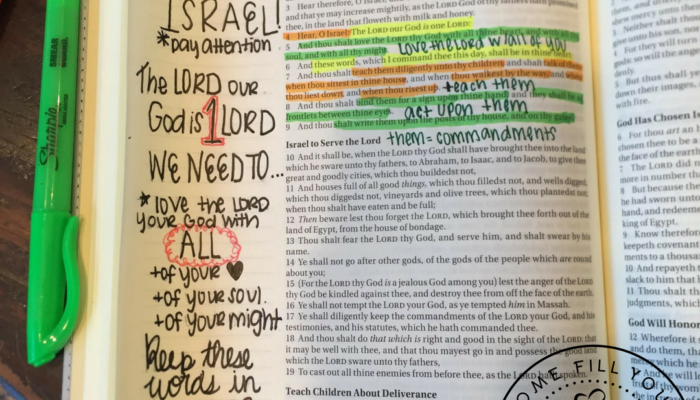 ISRAEL!
*pay attention
The LORD our
God is 1 LORD
WE NEED TO...
* love the LORD
your God with
ALL
+of your ♥
+of your soul.
+of your might
Keep these
words in
SHARPIE
SMEAR
3 Hear therefore, O Israel
and that ye may increase mightily, as the LORD God of
thee, in the land that floweth with milk and honey.
4 Hear, O Israel: The LORD our God is one LORD:
5 And thou shalt love the LORD thy God with all thine heart, and with all thy
soul, and with all thy might.
Love the Lord w/all of you
6 And these words, which I command thee this day, shall be in thine heart:
7 And thou shalt teach them diligently unto thy children, and shalt talk of them
when thou sittest in thine house, and when thou walkest by the way, and when
thou liest down, and when thou risest up.
teach them
8 And thou shalt bind them for a sign upon thine hand, and they shall be as
frontlets between thine eyes.
act upon them
9 And thou shalt write them upon the posts of thy house, and on thy gates.
them = commandments
Israel to Serve the Lord
10 And it shall be, when the LORD thy God shall have brought thee into the land
which he sware unto thy fathers, to Abraham, to Isaac, and to Jacob, to give thee
great and goodly cities, which thou buildedst not,
11 And houses full of all good things, which thou filledst not, and wells digged,
which thou diggedst not, vineyards and olive trees, which thou plantedst not;
when thou shalt have eaten and be full;
12 Then beware lest thou forget the LORD, which brought thee forth out of the
land of Egypt, from the house of bondage.
13 Thou shalt fear the LORD thy God, and serve him, and shalt swear by his
name.
14 Ye shall not go after other gods, of the gods of the people which are round
about you;
15 (For the LORD thy God is a jealous God among you) lest the anger of the LORD
thy God be kindled against thee, and destroy thee from off the face of the earth.
16 Ye shall not tempt the LORD your God, as ye tempted him in Massah.
17 Ye shall diligently keep the commandments of the LORD your God, and his
testimonies, and his statutes, which he hath commanded thee.
18 And thou shalt do that which is right and good in the sight of the LORD: that
it may be well with thee, and that thou mayest go in and possess the good land
which the LORD sware unto thy fathers,
19 To cast out all thine enemies from before thee, as the LORD hath spoken.
Teach Children About Deliverance
God Has Chosen
6 For thou art
chosen thee to be a
the face of the earth
7 The LORD did
more in number
8 But because
he had sworn unto
hand, and redeemed
king of Egypt.
9 Know therefore
keepeth covenant
ments to a
10 And repayeth
slack to him that
11 Thou shalt
judgments, which
God Will Honor
12 Wherefore it
OME FILL YO